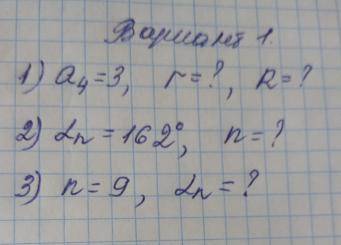 Вариант 1.
1) a₄ = 3, r = ?, R = ?
2) αₙ = 162°, n = ?
3) n = 9, αₙ = ?